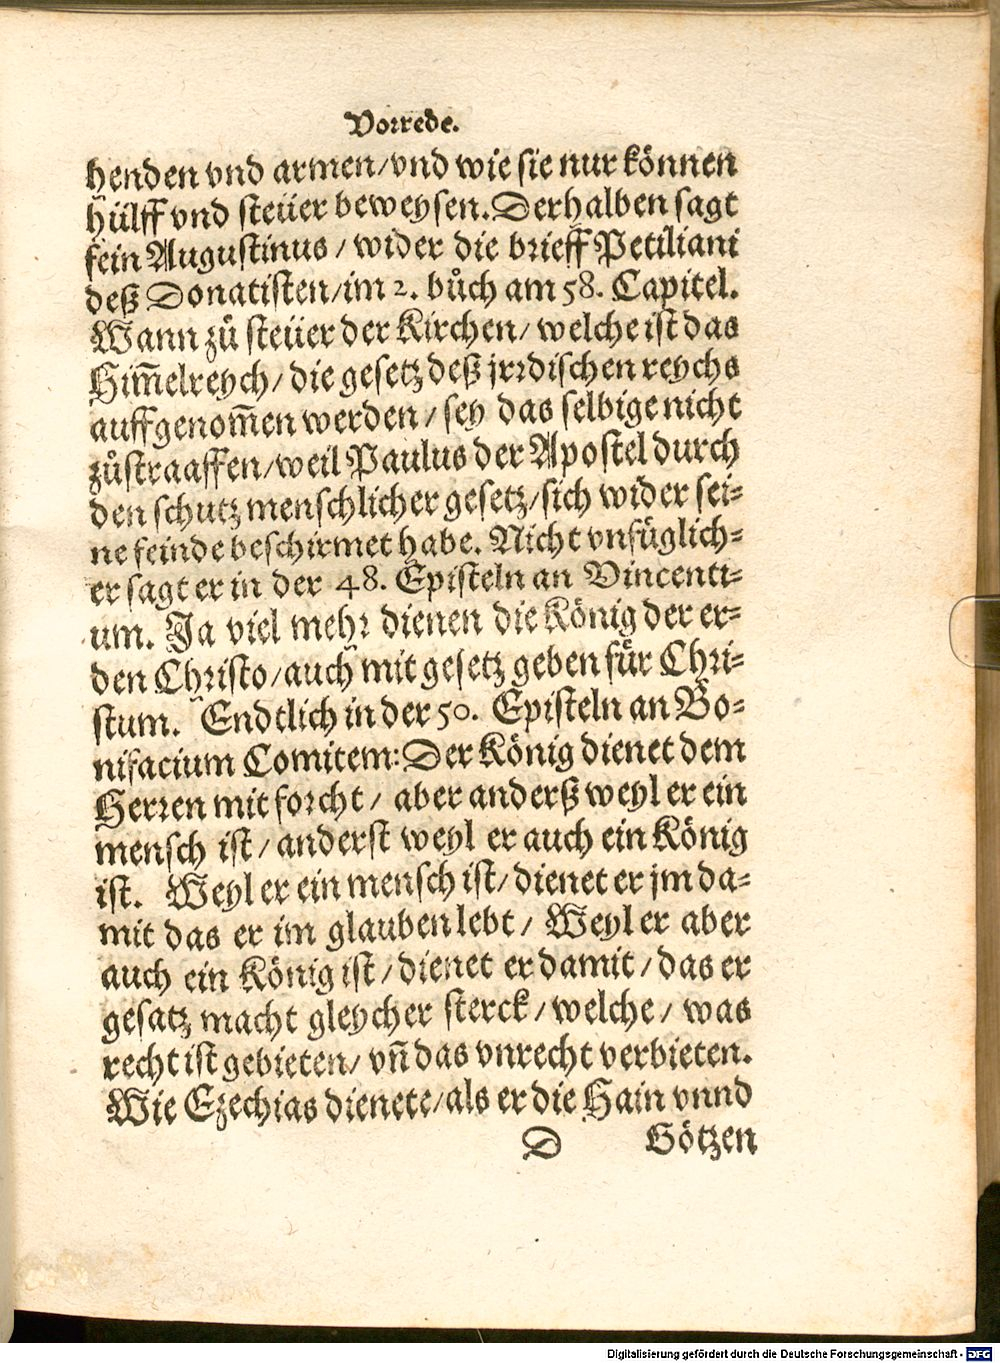 Vorrede.
henden vnd armen/vnd wie sie nur können
hülff vnd steüer beweysen. Derhalben sagt
fein Augustinus/ wider die brieff Petiliani
deß Donatisten/im 2. bůch am 58. Capitel.
Wann zů steüer der Kirchen/ welche ist das
Him̃elreych/ die gesetz deß jrrdischen reychs
auffgenom̃en werden/ sey das selbige nicht
zůstraaffen/weil Paulus der Apostel durch
den schutz menschlicher gesetz/sich wider sei-
ne feinde beschirmet habe. Nicht vnfüglich-
er sagt er in der 48. Episteln an Vincenti-
um. Ja viel mehr dienen die König der er-
den Christo/auch mit gesetz geben für Chri-
stum. Endtlich in der 50. Episteln an Bo-
nifacium Comitem: Der König dienet dem
Herren mit forcht/ aber anderß weyl er ein
mensch ist/ anderst weyl er auch ein König
ist. Weyl er ein mensch ist/ dienet er jm da-
mit das er im glauben lebt/ Weyl er aber
auch ein König ist/ dienet er damit/ das er
gesatz macht gleycher sterck/ welche/ was
recht ist gebieten/ vñ das vnrecht verbieten.
Wie Ezechias dienete/als er die Hain vnnd
D Götzen
Digitalisierung gefördert durch die Deutsche Forschungsgemeinschaft - DFG